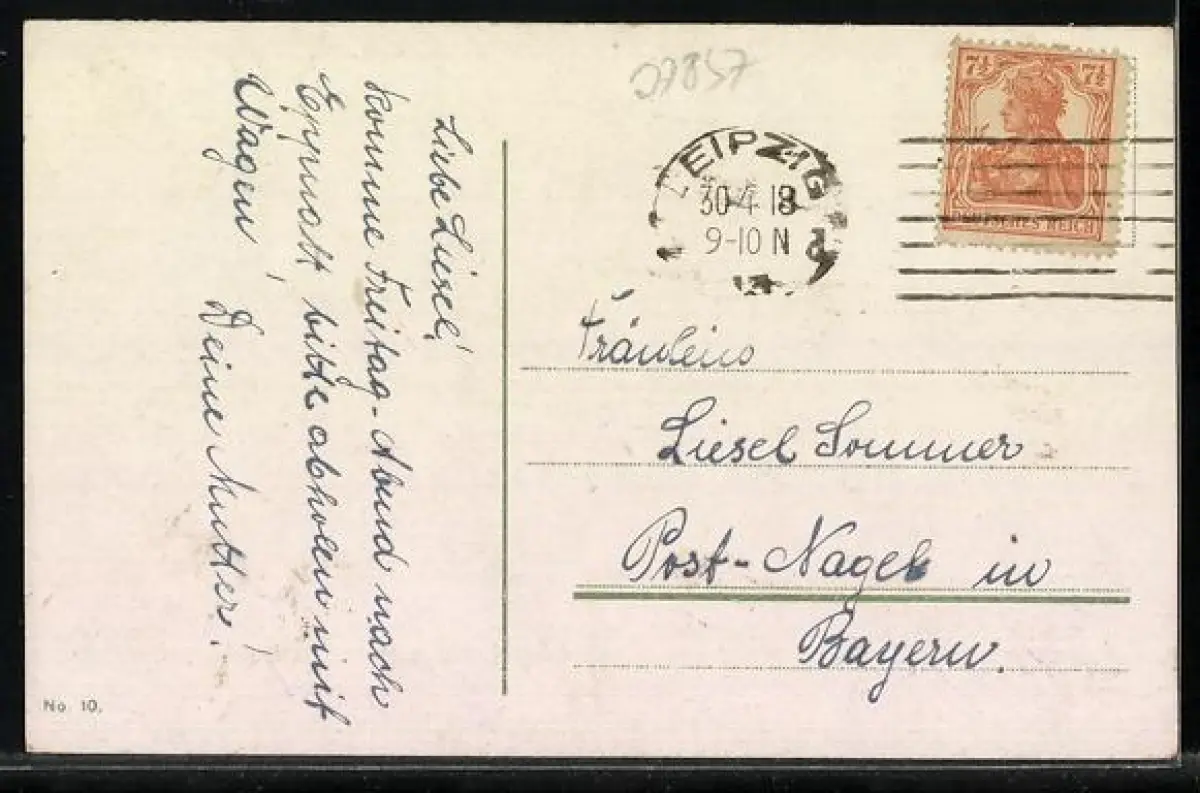 Liebe Liesel!
komme Freitag-Abend nach
bitte abholen mit
Wagen!
Deine Mutter!
No 10.
27857
LEIPZIG
30.4.18
9-10 N
7½ 7½
DEUTSCHES REICH
Fräulein
Liesel Sommer
Post-Nagel in
Bayern.